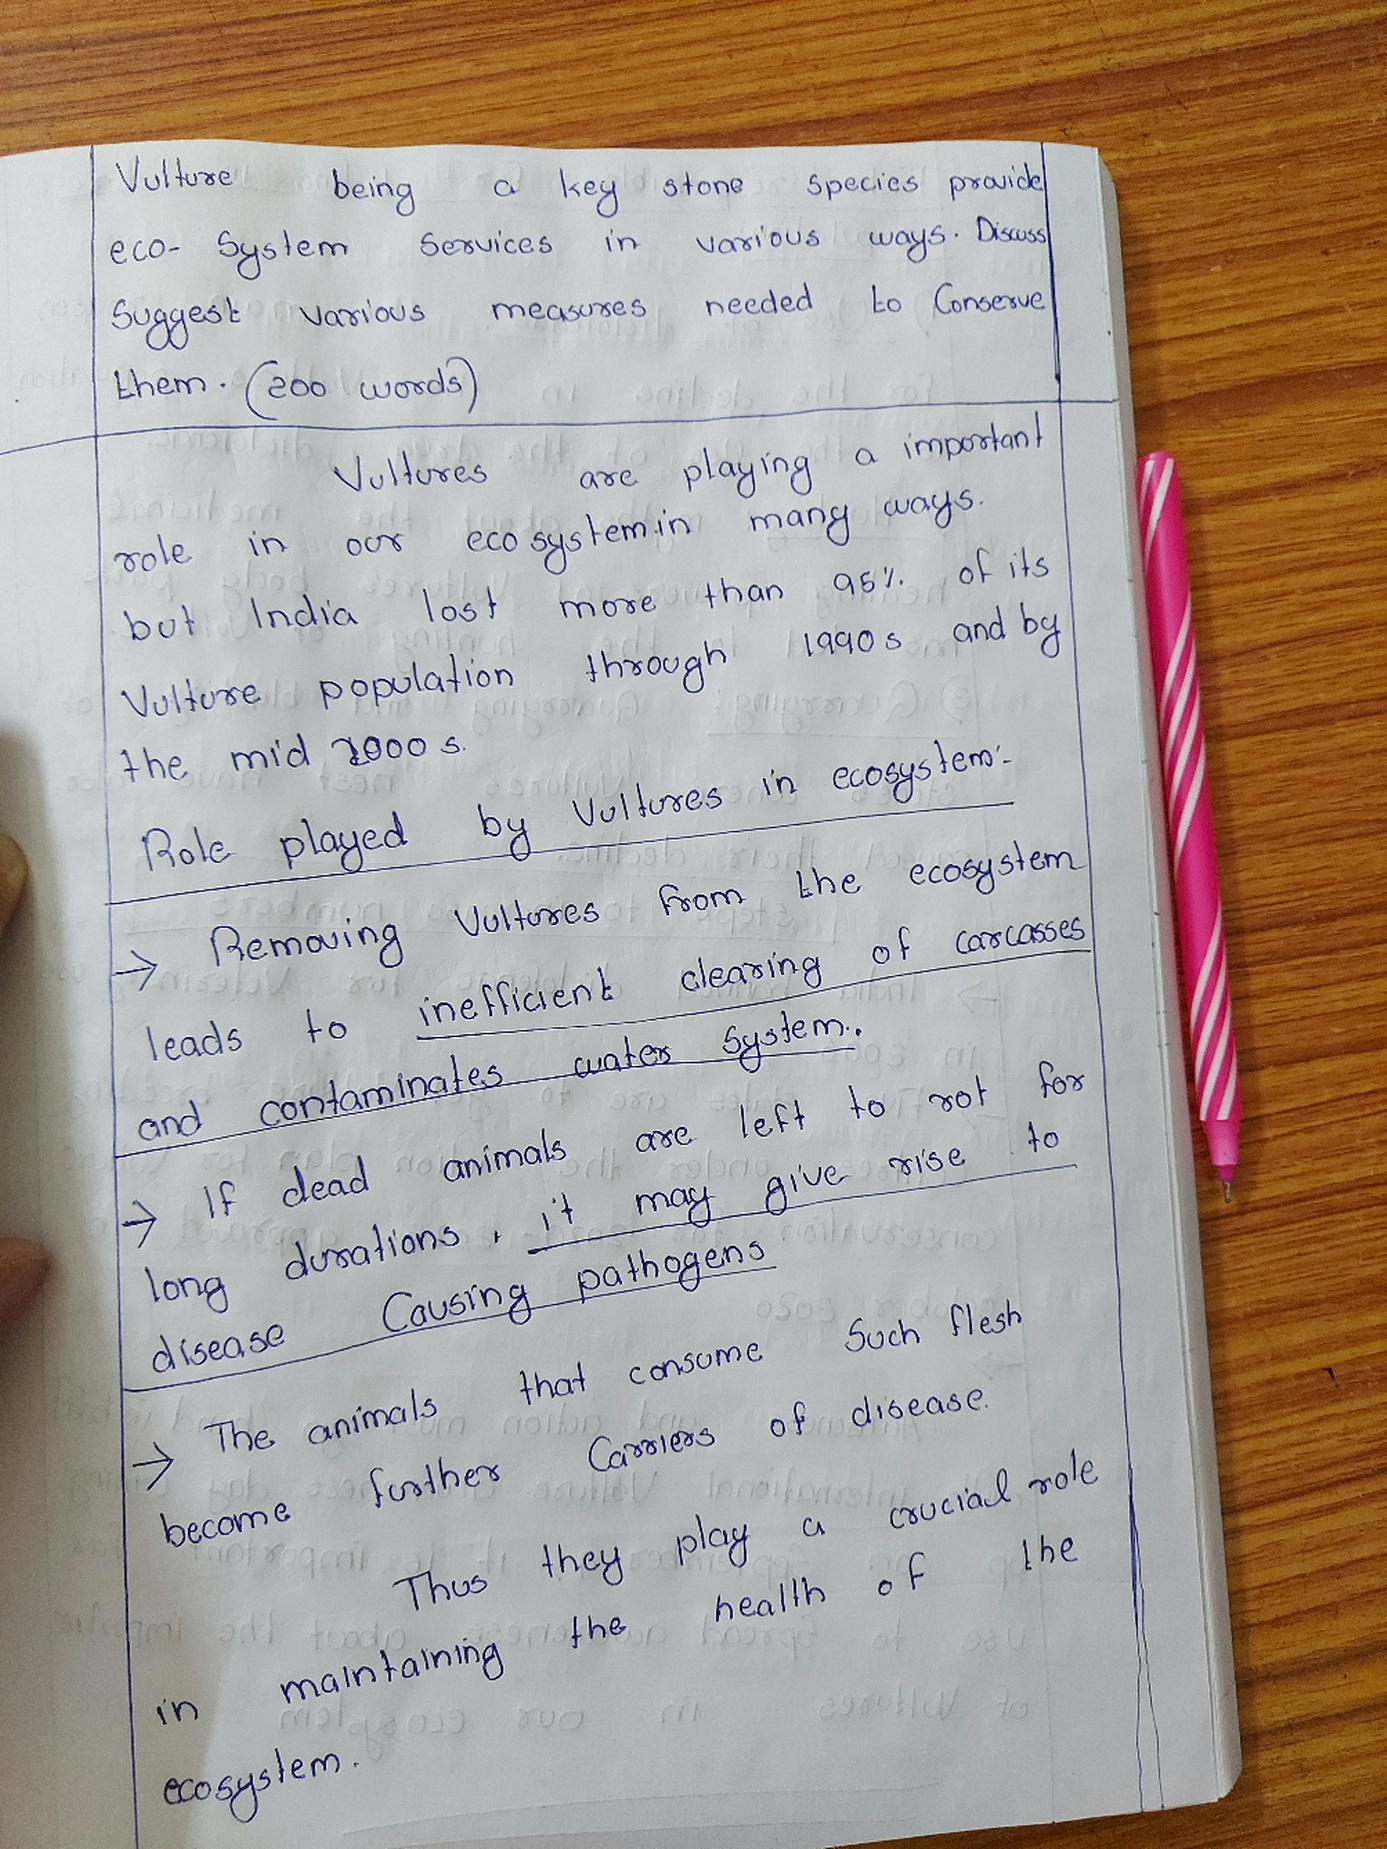 Vulture being a key stone species provide
eco- System Services in various ways. Discuss
Suggest various measures needed to Conserve
them. (200 words)
Vultures are playing a important
role in our eco system.in many ways.
but India lost more than 95%. of its
Vulture population through 1990s and by
the mid 2000s.
Role played by Vultures in ecosystem:-
→ Removing Vultures from the ecosystem
leads to inefficient clearing of carcasses
and contaminates water system.
→ If dead animals are left to rot for
long durations, it may give rise to
disease Causing pathogens
→ The animals that consume Such flesh
become further Carriers of disease.
Thus they play a crucial role
in maintaining the health of the
ecosystem.